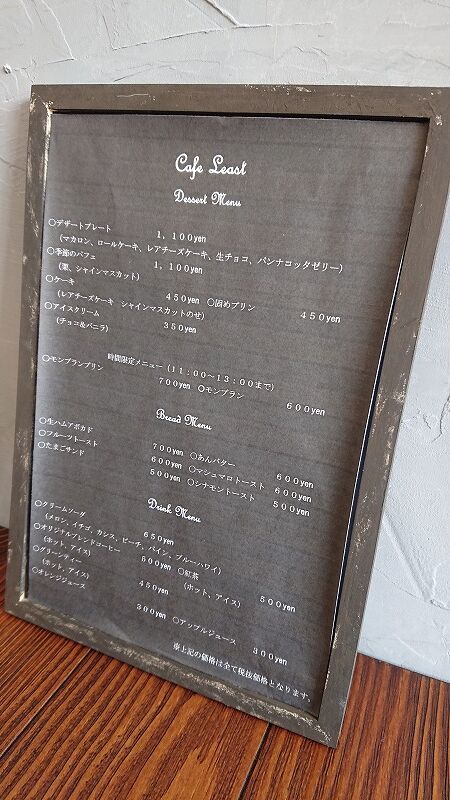 Cafe Least
Dessert Menu
○デザートプレート 1，100yen
(マカロン、ロールケーキ、レアチーズケーキ、生チョコ、パンナコッタゼリー)
○季節のパフェ 1，100yen
(栗、シャインマスカット)
○ケーキ 450yen ○固めプリン 450yen
(レアチーズケーキ シャインマスカットのせ)
○アイスクリーム 350yen
(チョコ&バニラ)
時間限定メニュー（11：00～13：00まで）
○モンブランプリン 700yen ○モンブラン 600yen
Bread Menu
○生ハムアボカド 700yen ○あんバター 600yen
○フルーツトースト 600yen ○マシュマロトースト 600yen
○たまごサンド 500yen ○シナモントースト 500yen
Drink Menu
○クリームソーダ 650yen
(メロン、イチゴ、カシス、ピーチ、パイン、ブルーハワイ)
○オリジナルブレンドコーヒー 500yen ○紅茶 500yen
(ホット、アイス) (ホット、アイス)
○グリーンティー 450yen
(ホット、アイス)
○オレンジジュース 300yen ○アップルジュース 300yen
※上記の価格は全て税抜価格となります。